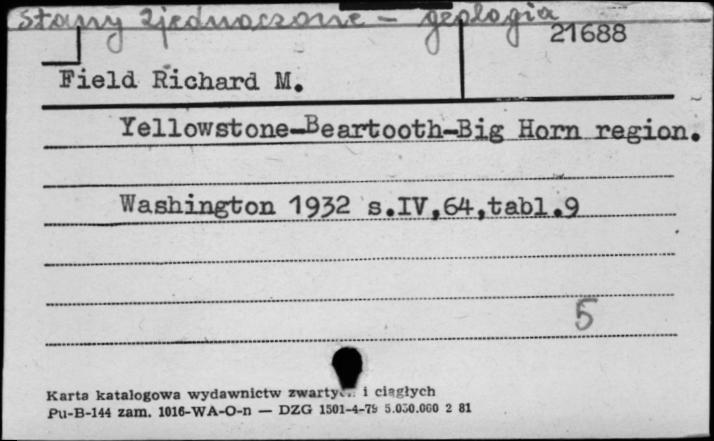 Stany Zjednoczone - geologia
21688
Field Richard M.
Yellowstone-Beartooth-Big Horn region.
Washington 1932 s.IV,64,tabl.9
5
Karta katalogowa wydawnictw zwartych i ciągłych
Pu-B-144 zam. 1016-WA-O-n — DZG 1501-4-79 5.050.060 2 81